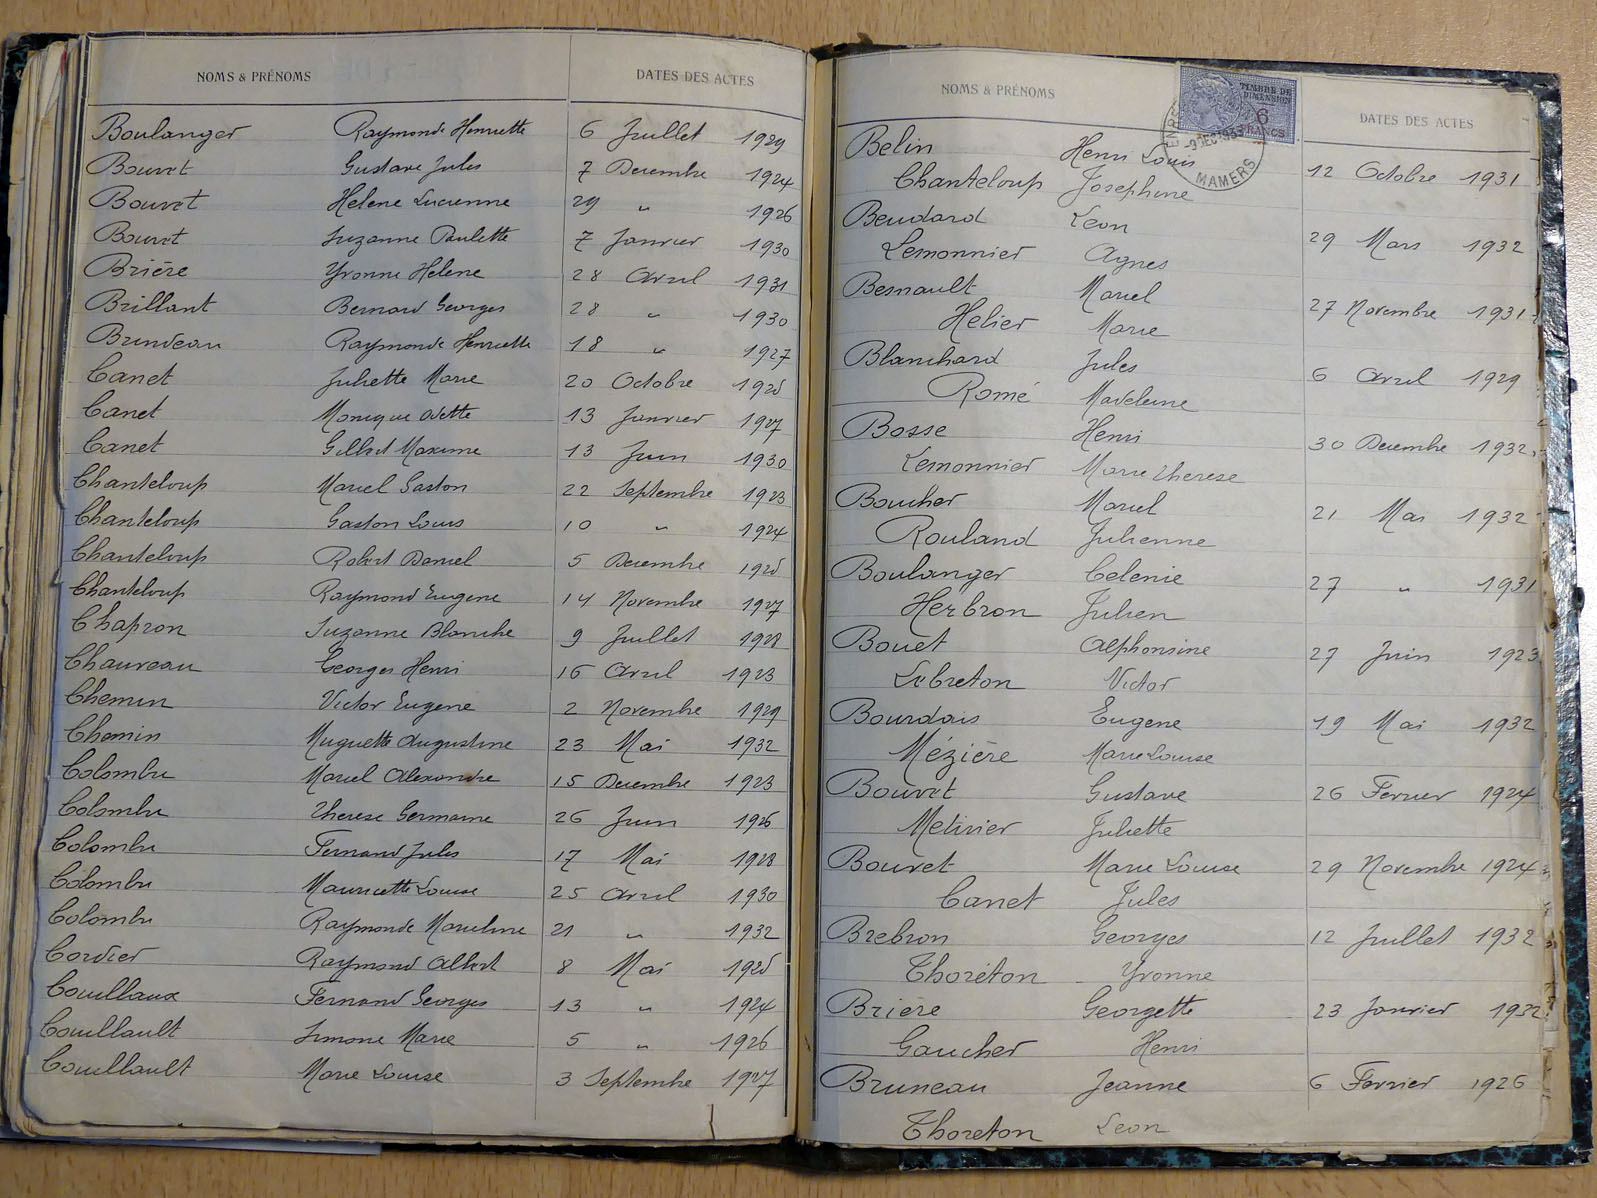 NOMS & PRÉNOMS DATES DES ACTES
Boulanger Raymonde Henriette 6 Juillet 1929
Bouvet Gustave Jules 7 Decembre 1924
Bouvet Helene Lucienne 29 " 1926
Bouvet Suzanne Paulette 7 Janvier 1930
Brière Yvonne Helene 28 Avril 1931
Brillant Bernard Georges 28 " 1930
Bruneau Raymonde Henriette 18 " 1927
Canet Juliette Marie 20 Octobre 1925
Canet Monique Odette 13 Janvier 1927
Canet Gilbert Maxime 13 Juin 1930
Chanteloup Marcel Gaston 22 Septembre 1923
Chanteloup Gaston Louis 10 " 1924
Chanteloup Robert Daniel 5 Decembre 1925
Chanteloup Raymond Eugene 14 Novembre 1927
Chapron Suzanne Blanche 9 Juillet 1928
Chauveau Georges Henri 16 Avril 1923
Chemin Victor Eugene 2 Novembre 1929
Chemin Muguette Augustine 23 Mai 1932
Colombu Marcel Alexandre 15 Decembre 1923
Colombu Therese Germaine 26 Juin 1926
Colombu Fernand Jules 17 Mai 1928
Colombu Mauricette Louise 25 Avril 1930
Colombu Raymonde Marceline 21 " 1932
Cordier Raymond Albert 8 Mai 1925
Couillaux Fernand Georges 13 " 1924
Couillault Simone Marie 5 " 1926
Couillault Marie Louise 3 Septembre 1927
NOMS & PRÉNOMS DATES DES ACTES
TIMBRE DE
DIMENSION
6
FRANCS
MAMERS
Belin Henri Louis
Chanteloup Josephine 12 Octobre 1931
Beudard Leon
Lemonnier Agnes 29 Mars 1932
Besnault Marcel
Helier Marie 27 Novembre 1931
Blanchard Jules
Romé Madeleine 6 Avril 1929
Bosse Henri
Lemonnier Marie Therese 30 Decembre 1932
Boucher Marcel
Rouland Julienne 21 Mai 1932
Boulanger Celenie
Herbron Julien 27 " 1931
Bouet Alphonsine
Lebreton Victor 27 Juin 1923
Bourdais Eugene
Mézière Marie Louise 19 Mai 1932
Bouvet Gustave
Metivier Juliette 26 Fevrier 1924
Bouvet Marie Louise 29 Novembre 1924
Canet Jules
Brebron Georges 12 Juillet 1932
Thoréton Yvonne
Brière Georgette 23 Janvier 1932
Gaucher Henri
Bruneau Jeanne 6 Fevrier 1926
Thoreton Leon